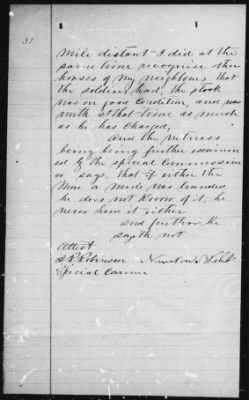 31
mile distant - I did at the
same time recognise the
horses of my neighbours, that
the soldiers had, the stock
was in good condition, and was
worth at that time as much
as he has charged,
and the witness
being further examin
ed by the special Commission
er says, that if either the
Mare or Mule was branded
he does not know of it, he
never seen it either
and further he
sayeth not
Attest
Robinson Newton Webb
Special Commr